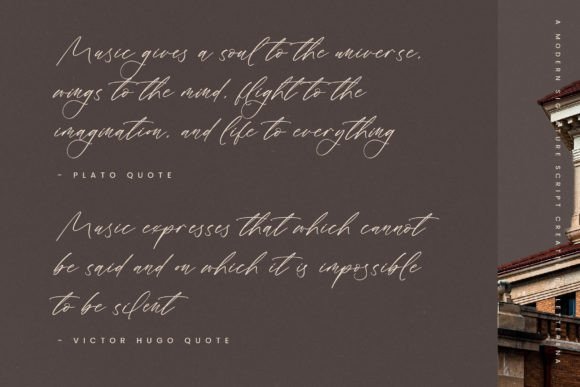 Music gives a soul to the universe,
wings to the mind, flight to the
imagination, and life to everything
- PLATO QUOTE
Music expresses that which cannot
be said and on which it is impossible
to be silent
- VICTOR HUGO QUOTE
A MODERN SI URE SCRIPT CREAT